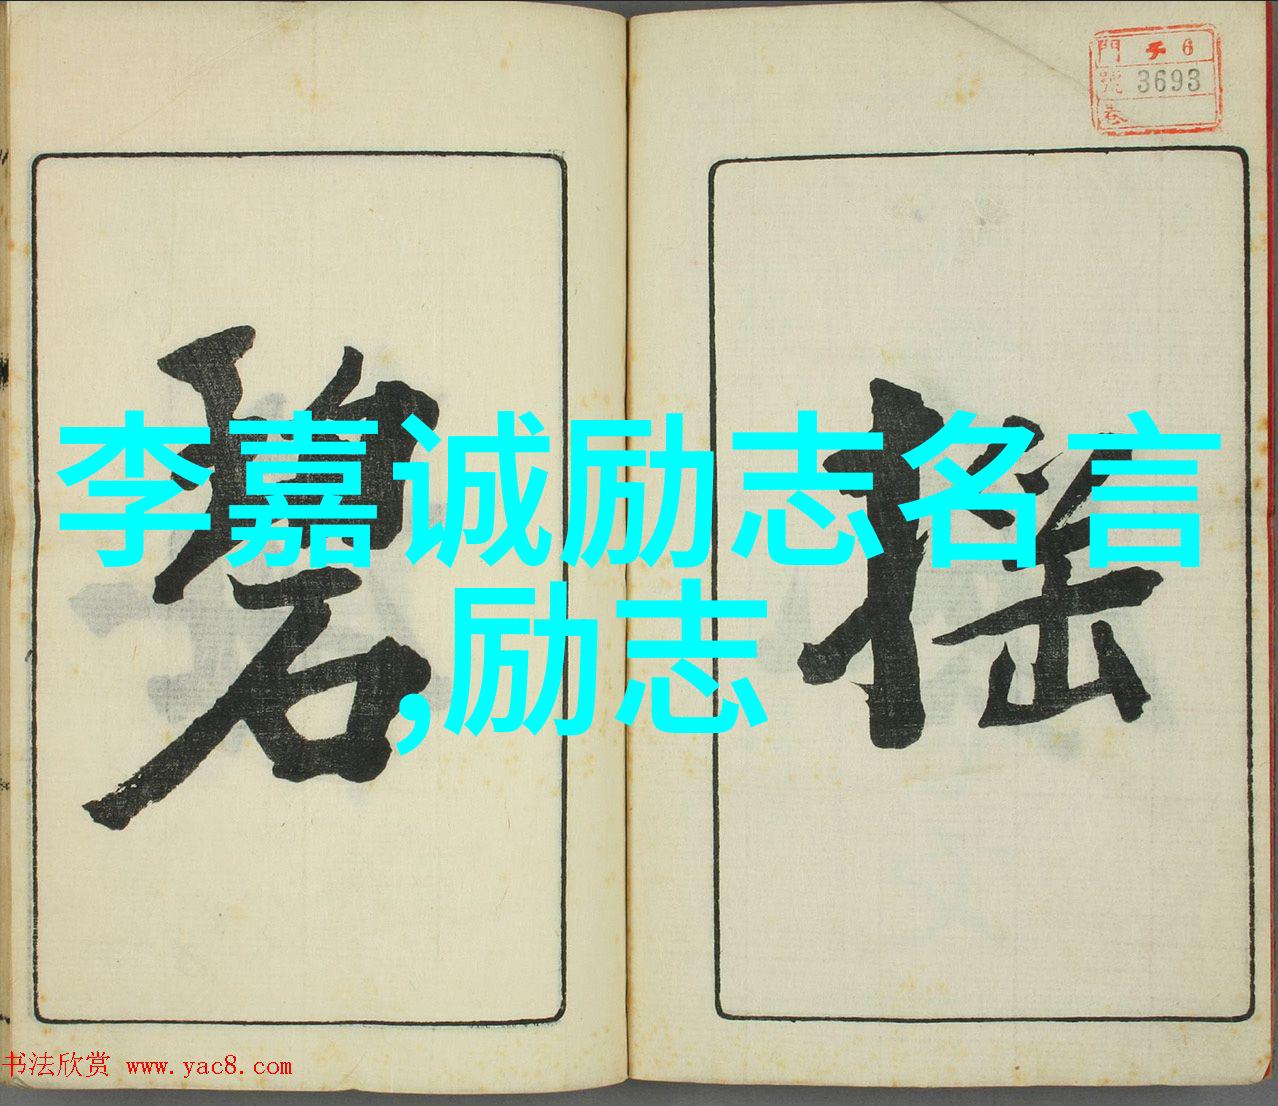 門 チ 6
號 3693
巻
搖
碧
李嘉诚励志名言
,励志
书法欣赏 www.yac8.com